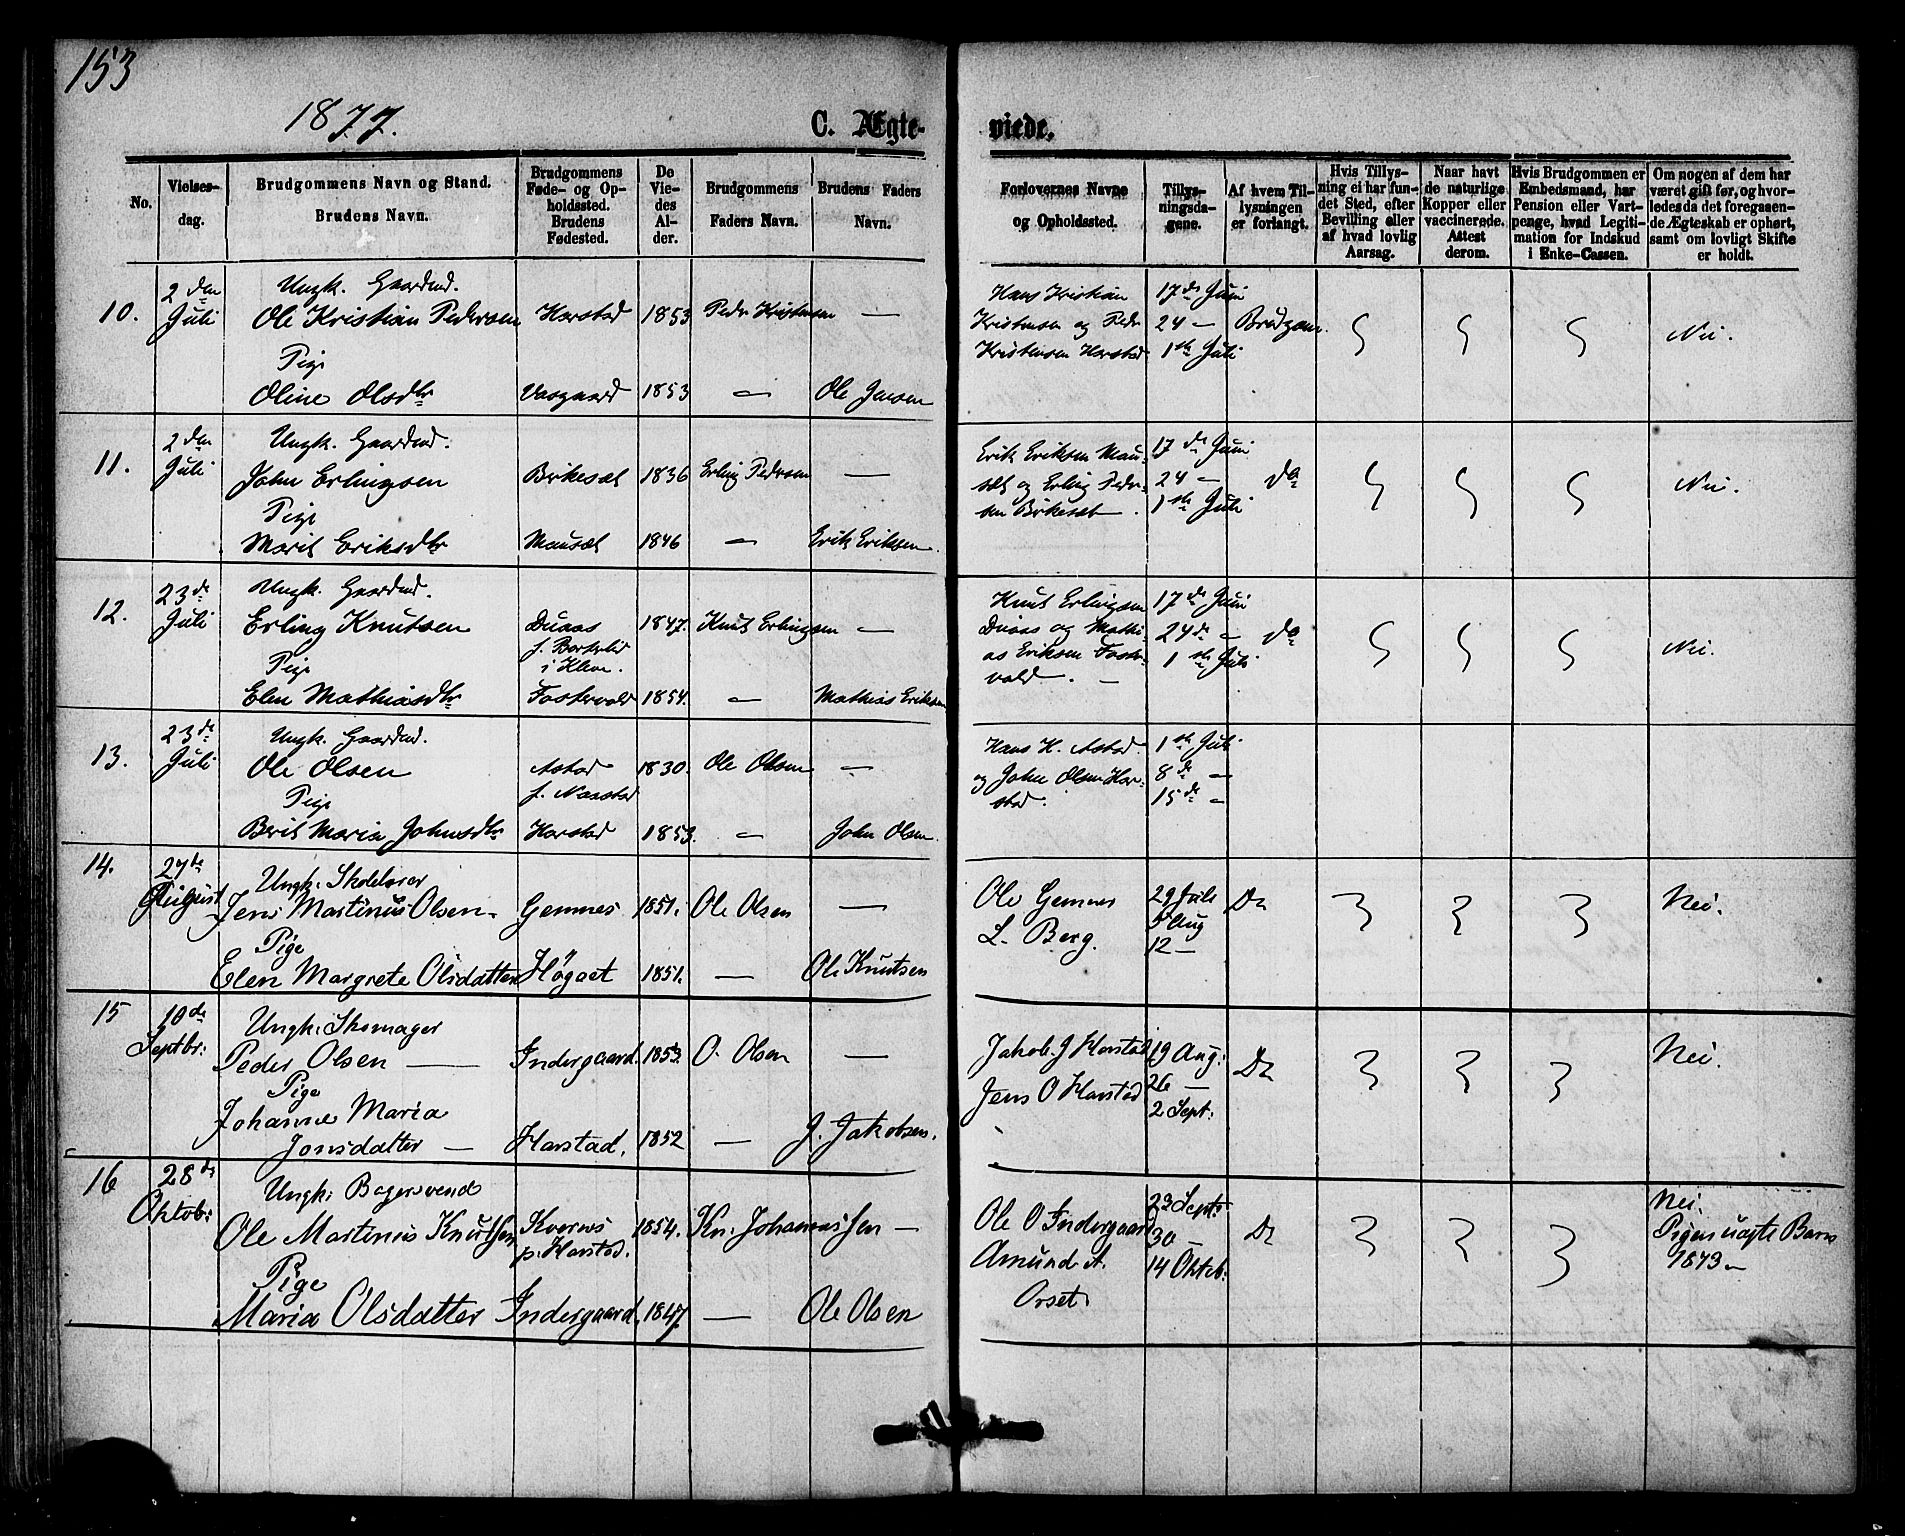 153
1877.
C. Ægteviede.
No.
Vielsesdag.
Brudgommens Navn og Stand.
Brudens Navn.
Brudgommens
Føde- og Op-
holdssted.
Brudens
Fødested.
De
Vie-
des
Al-
der.
Brudgommens
Faders Navn.
Brudens Faders
Navn.
Forlovernes Navne
og Opholdssted.
Tillys-
ningsda-
gene.
Af hvem Til-
lysningen
er forlangt.
Hvis Tillys-
ning ei har fun-
det Sted, efter
Bevilling eller
af hvad lovlig
Aarsag.
Naar havt
de naturlige
Kopper eller
vaccinerede.
Attest
derom.
Hvis Brudgommen er
Embedsmand, har
Pension eller Vart-
penge, hvad Legiti-
mation for Indskud
i Enke-Cassen.
Om nogen af dem har
været gift før, og hvor-
ledes da det foregaaen-
de Ægteskab er ophørt,
samt om lovligt Skifte
er holdt.
10. 2den Juli
Ungk. Gaardmd.
Ole Kristian Pedersen Harstad 1853 Peder Kristensen —
Pige
Oline Olsdtr Vasgaard 1853 — Ole Jensen
Hans Kristian 17de Juni
Kristensen og Peder 24 — Brudgom. Nei.
Kristensen Harstad 1ste Juli
11. 2den Juli
Ungk. Gaardmd.
John Erlingsen Birkesæt 1836 Erling Pedersen —
Pige
Marit Eriksdtr Mausæt 1846 — Erik Eriksen.
Erik Eriksen Mau- 17de Juni
sæt og Erling Peder- 24 — do Nei.
sen Birkesæt. 1ste Juli
12. 23de Juli
Ungk. Gaardmd.
Erling Knutsen Duaas 1847. Knut Erlingsen —
i Kleve.
Pige
Elen Mathiasdtr Fostervold 1854. — Mathias Eriksen
Knut Erlingsen 17de Juni
Duaas og Mathi- 24de — do Nei.
as Eriksen Foster- 1ste Juli
vold. —
13. 23de Juli
Ungk. Gaardmd.
Ole Olsen Astad 1830. Ole Olsen —
f. Naastad
Pige
Berit Maria Johnsdtr Harstad 1853. — John Olsen.
Hans H. Astad. 1ste Juli
og John Olsen Har- 8de —
stad. 15de —
14. 27de August
Ungk. Skolelærer
Jens Martinus Olsen — Gemnes 1851. Ole Olsen —
Pige
Elen Margrete Olsdatter Høgset 1851. — Ole Knutsen
Ole Gemnes 29 Juli Do Nei.
L. Berg. 5 Aug
12 —
15 10de Septbr:
Ungk: Skomager
Peder Olsen — Indergaard. 1853. O. Olsen —
Pige
Johanne Maria
Jonsdatter — Harstad. 1852 — J. Jakobsen.
Jakob J Harstad 19 Aug: Do Nei.
Jens O Harstad 26 —
2 Sept:
16 28de Oktob:
Ungk: Bagersvend
Ole Martinus Knutsen Kvernes 1854. Kn. Johannessen —
p. Harstad.
Pige
Maria Olsdatter Indergaard. 1847. — Ole Olsen
Ole O Indergaard 23 Sept: Do Nei.
Amund A. 30 — Pigen uægte Barn
Orset. 14 Oktob: 1873 —